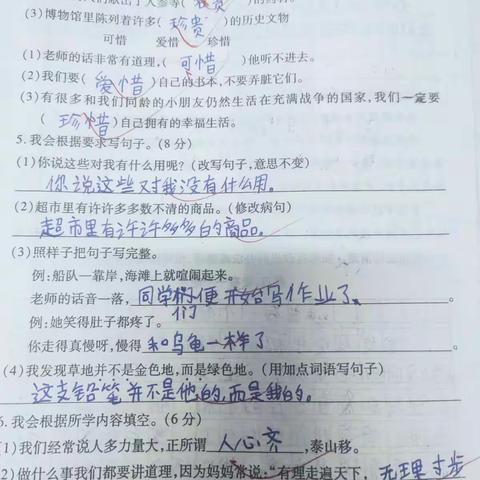 (3)博物馆里陈列着许多( 珍贵 )的历史文物
可惜 爱惜 珍惜
(1)老师的话非常有道理,( 可惜 )他听不进去。
(2)我们要( 爱惜 )自己的书本,不要弄脏它们。
(3)有很多和我们同龄的小朋友仍然生活在充满战争的国家,我们一定要
( 珍惜 )自己拥有的幸福生活。
5.我会根据要求写句子。(8分)
(1)你说这些对我有什么用呢?(改写句子,意思不变)
你说这些对我没有什么用。
(2)超市里有许许多多数不清的商品。(修改病句)
超市里有许许多多的商品。
(3)照样子把句子写完整。
例:船队一靠岸,海滩上就喧闹起来。
老师的话音一落,同学们便开始写作业了。
们
例:她笑得肚子都疼了。
你走得真慢呀,慢得 和乌龟一样了 。
(4)我发现草地并不是金色地,而是绿色地。(用加点词语写句子)
这支铅笔并不是他的,而是我的。
6.我会根据所学内容填空。(6分)
(1)我们经常说人多力量大,正所谓 人心齐 ,泰山移。
2)做什么事我们都要讲道理,因为妈妈常说:“有理走遍天下, 无理寸步